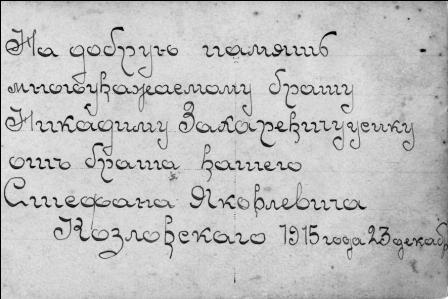 На добрую память
многоуважаемому брату
Никадиму Захаревичу усику
отъ брата вашего
Стефана Яковлевича
Козловскаго 1915 года 23 декабр